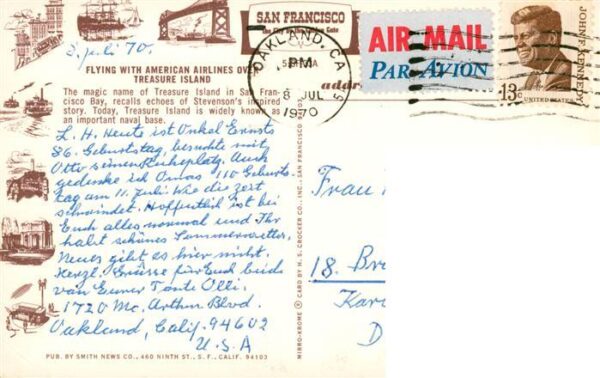 SAN FRANCISCO
8. Juli 70.
FLYING WITH AMERICAN AIRLINES OVER
TREASURE ISLAND
The magic name of Treasure Island in San Fran-
cisco Bay, recalls echoes of Stevenson's inspired
story. Today, Treasure Island is widely known as
an important naval base.
L. H. Heute ist Onkel Ernsts
86. Geburtstag, besuchte mit
Otto seinen Ruheplatz. Auch
gedenke ich Omas 110 Geburts-
tag am 11. Juli. Wie die Zeit
schwindet. Hoffentlich ist bei
Euch alles normal und Ihr
habt schönes Sommerwetter.
Neues gibt es hier nicht.
Herzl. Grüsse für Euch beide
von Eurer Tante Olli.
1720 Mc. Arthur Blvd.
Oakland, Calif. 94602
U.S.A
PUB. BY SMITH NEWS CO., 460 NINTH ST., S.F., CALIF. 94103
MIRRO-KROME ® CARD BY H. S. CROCKER CO., INC., SAN FRANCISCO
OAKLAND, CA
PM
8 JUL
1970
AIR MAIL
PAR AVION
JOHN F. KENNEDY
13c
UNITED STATES
addre
Frau
18. Br
Kar
D